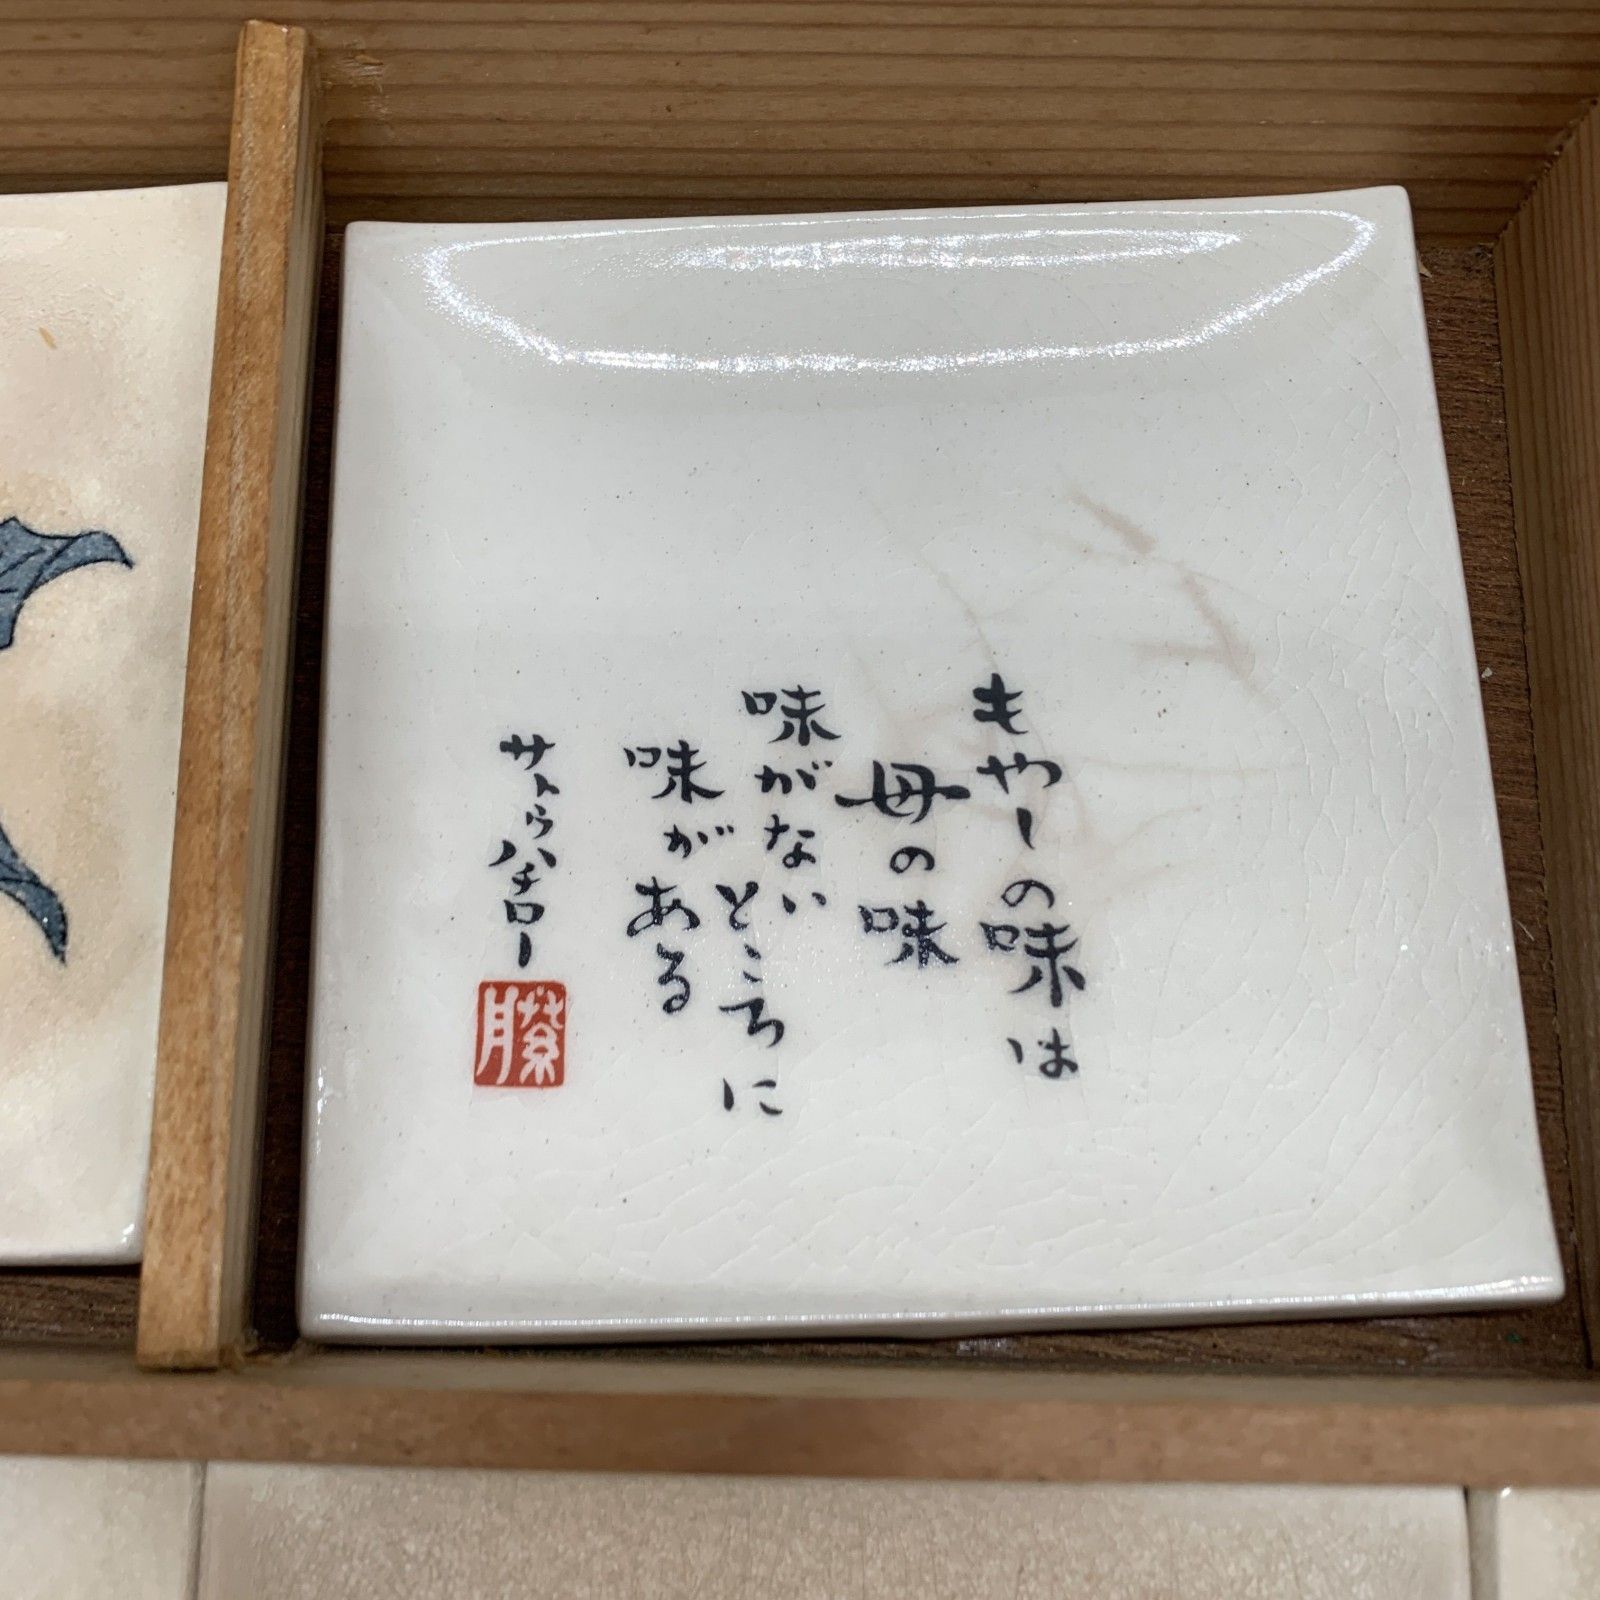 もやしの味は
母の味
味がないところに
味がある
サトウハチロー